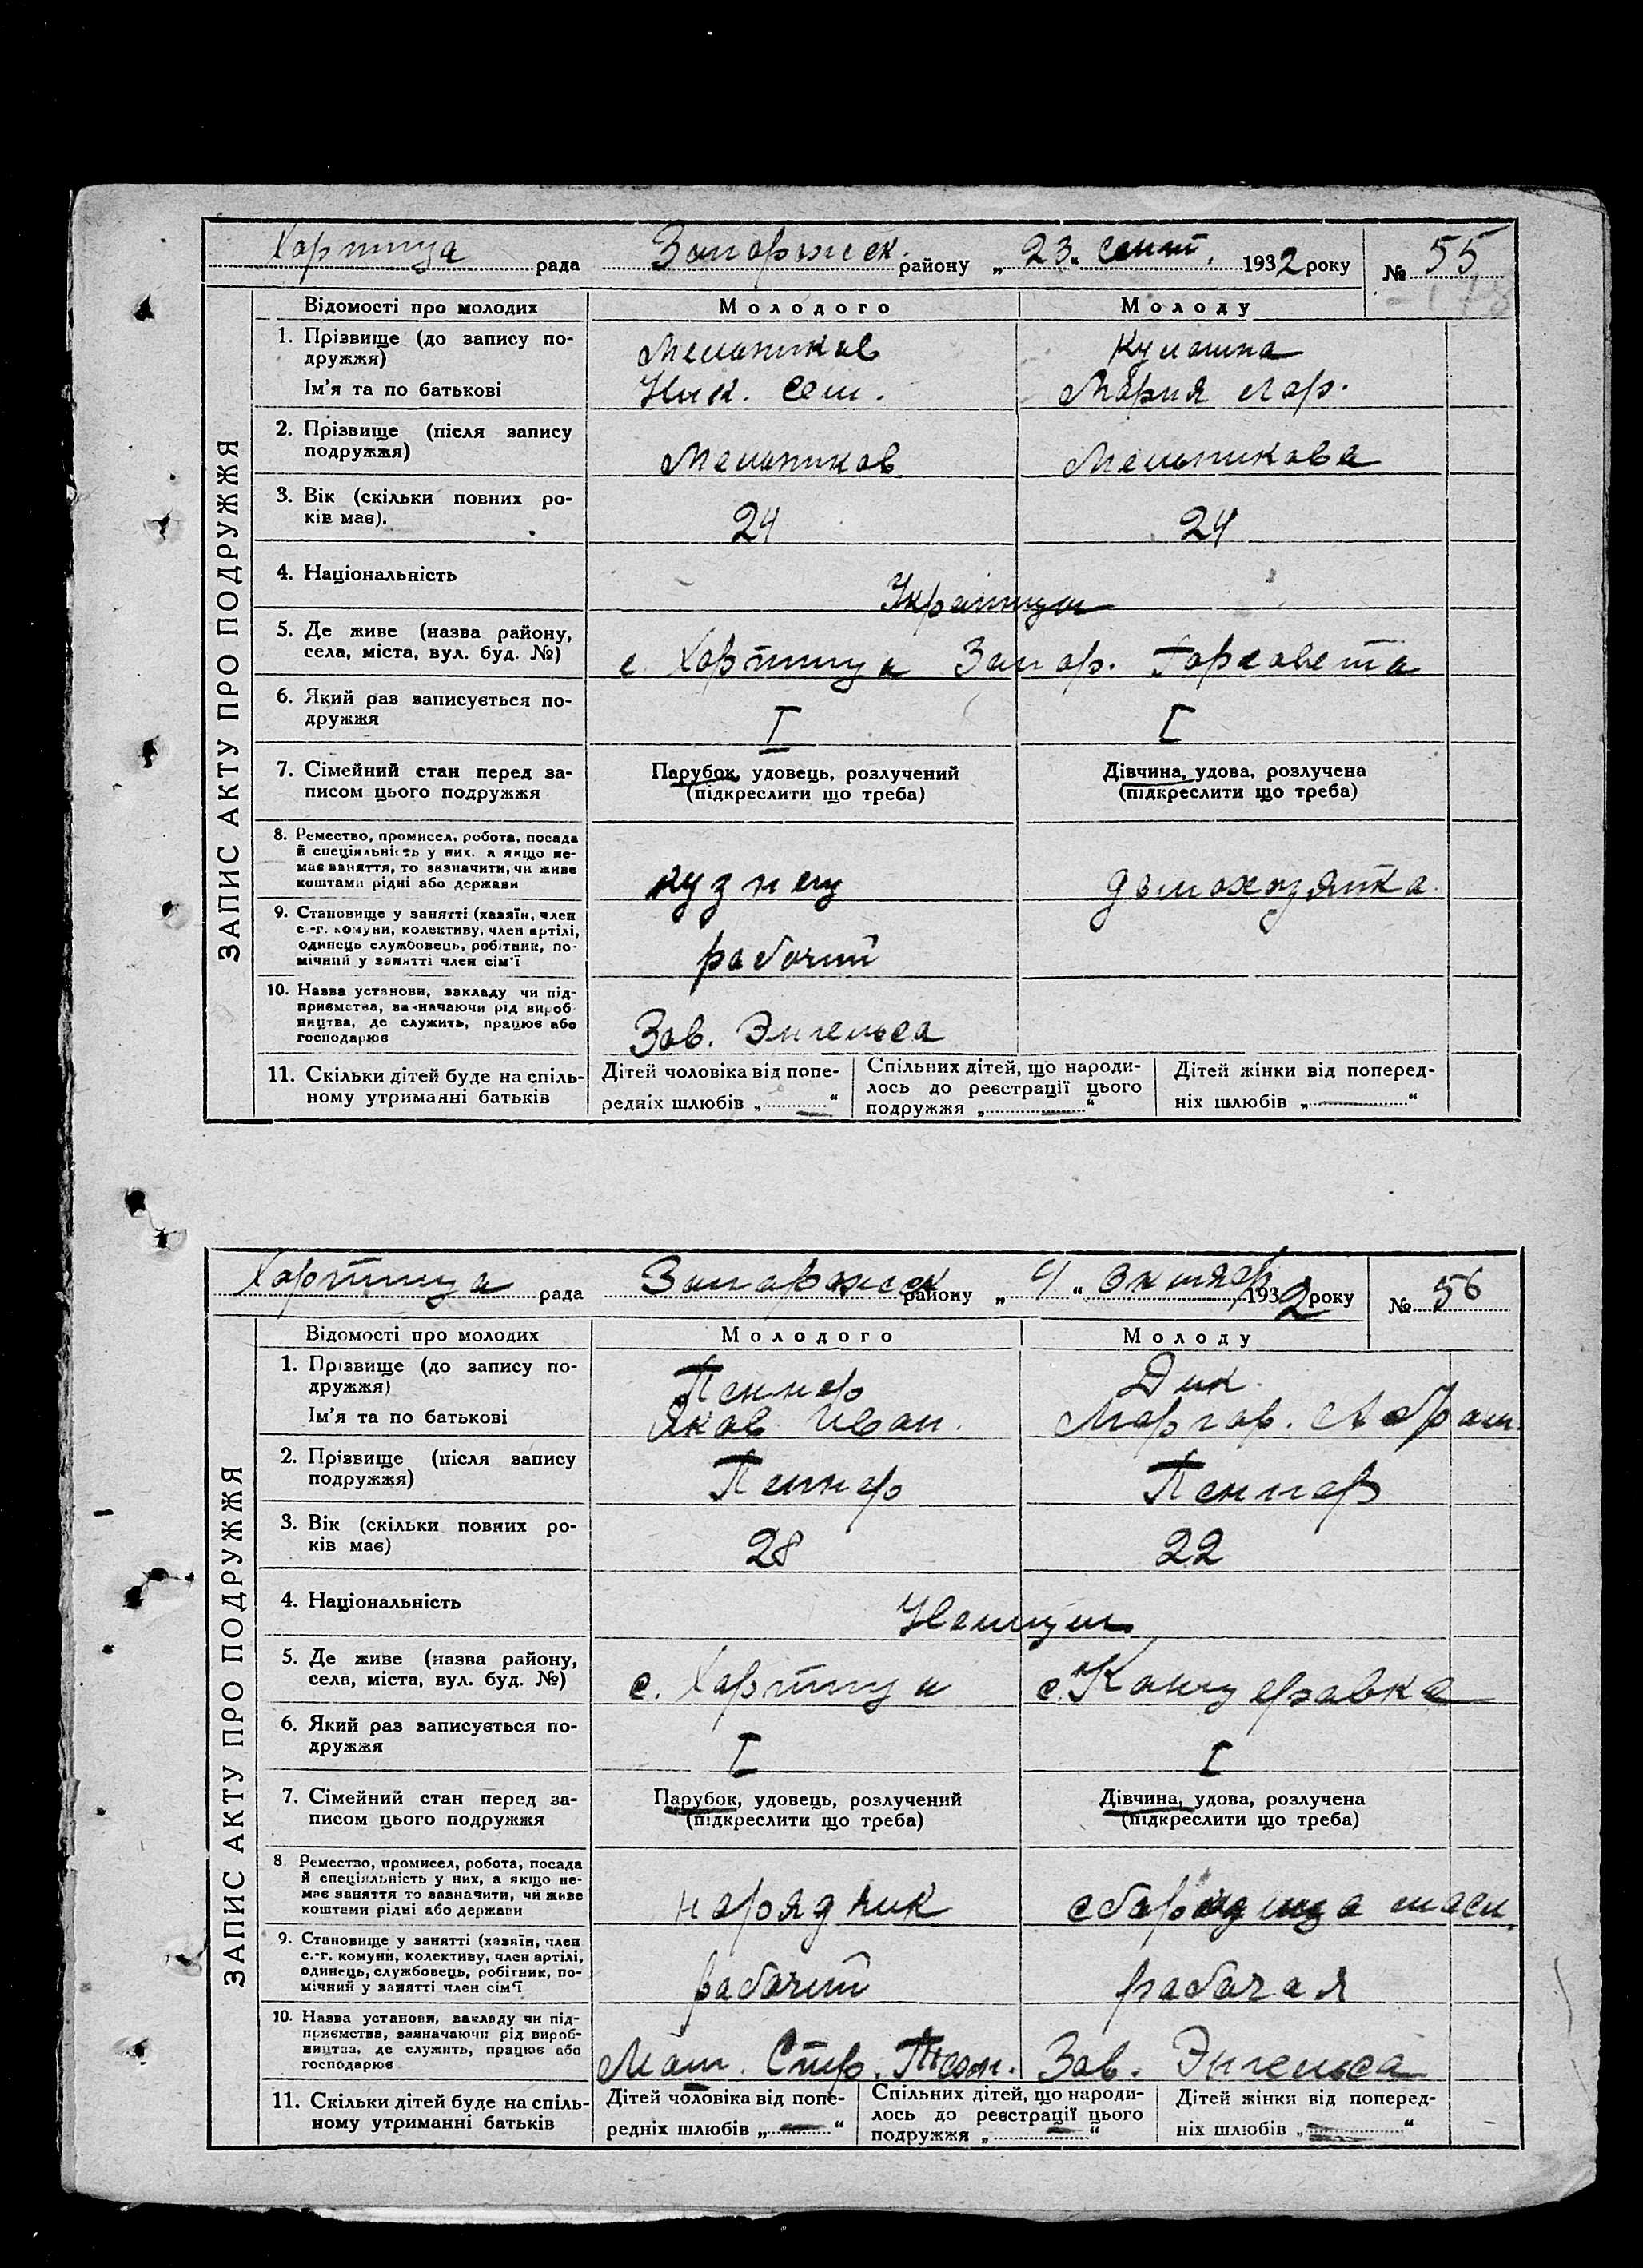 Хортица рада Запорожск. району „ 23 „ сент. 1932 року № 55
Відомості про молодих Молодого Молоду
1. Прізвище (до запису по-
дружжя) Мельников
Ім'я та по батькові Ник. Сем. Мария Лар.
2. Прізвище (після запису
подружжя) Мельников Мельникова
3. Вік (скільки повних ро-
ків має). 24 24
4. Національність Украинцы
5. Де живе (назва району,
села, міста, вул. буд. №) с. Хортица Запор. Горсовета
6. Який раз записується по-
дружжя I I
7. Сімейний стан перед за-
писом цього подружжя
Парубок, удовець, розлучений
(підкреслити що треба)
Дівчина, удова, розлучена
(підкреслити що треба)
8. Ремество, промисел, робота, посада
й спеціяльність у них, а якщо не-
має заняття, то зазначити, чи живе
коштами рідні або держави кузнец домохозяйка
9. Становище у занятті (хазяїн, член
с.-г. комуни, колективу, член артілі,
одинець службовець, робітник, по-
мічний у занятті член сім'ї рабочий
10. Назва установи, закладу чи під-
приємства, зазначаючи рід вироб-
ництва, де служить, працює або
господарює Зав. Энгельса
11. Скільки дітей буде на спіль-
ному утриманні батьків
Дітей чоловіка від попе-
редніх шлюбів „ — “
Спільних дітей, що народи-
лось до реєстрації цього
подружжя „ — “
Дітей жінки від поперед-
ніх шлюбів „ — “
ЗАПИС АКТУ ПРО ПОДРУЖЖЯ
Хортица рада Запорожск району „ 4 “ октябр 1932 року № 56
Відомості про молодих Молодого Молоду
1. Прізвище (до запису по-
дружжя) Пеннер Дик
Ім'я та по батькові Яков Иван. Маргар. Абрам.
2. Прізвище (після запису
подружжя) Пеннер Пеннер
3. Вік (скільки повних ро-
ків має) 28 22
4. Національність Немцы
5. Де живе (назва району,
села, міста, вул. буд. №) с. Хортица с. Канцеравка
6. Який раз записується по-
дружжя I I
7. Сімейний стан перед за-
писом цього подружжя
Парубок, удовець, розлучений
(підкреслити що треба)
Дівчина, удова, розлучена
(підкреслити що треба)
8. Ремество, промисел, робота, посада
й спеціяльність у них, а якщо не-
має заняття то зазначити, чи живе
коштами рідні або держави нарядчик
9. Становище у занятті (хазяїн, член
с.-г. комуни, колективу, член артілі,
одинець, службовець, робітник, по-
мічний у занятті член сім'ї рабочий рабочая
10. Назва установи, закладу чи під-
приємства, зазначаючи рід вироб-
ництва, де служить, працює або
господарює Маш. Зав. Энгельса
11. Скільки дітей буде на спіль-
ному утриманні батьків
Дітей чоловіка від попе-
редніх шлюбів „ — “
Спільних дітей, що народи-
лось до реєстрації цього
подружжя „ — “
Дітей жінки від поперед-
ніх шлюбів „ — “
ЗАПИС АКТУ ПРО ПОДРУЖЖЯ